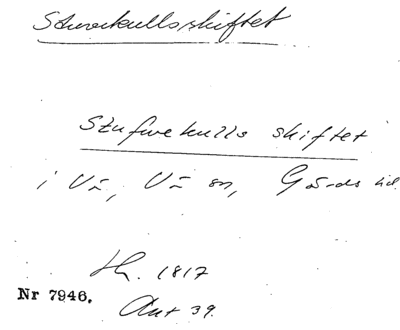 Stuvekullsskiftet
Stufvekulls skiftet
i Vä, Vä sn, Gärds hd.
Hh. 1817
Nr 7946.
Akt 39.